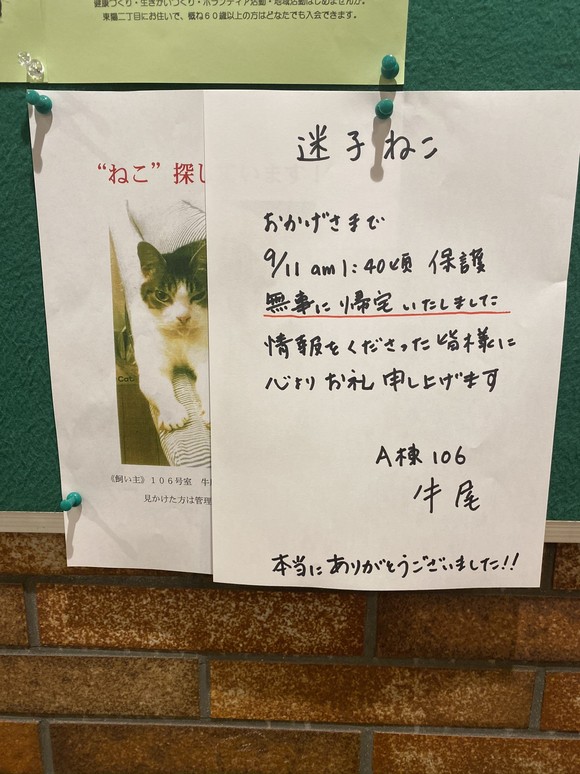 健康づくり・生きがいづくり・ボランティア活動・地域活動はじめませんか。
東陽二丁目にお住いで、概ね60歳以上の方はどなたでも入会できます。
“ねこ” 探し
Cat:
《飼い主》106号室 牛
見かけた方は管理
迷子ねこ
おかげさまで
9/11 am1:40頃 保護
無事に帰宅いたしました
情報をくださった皆様に
心より お礼 申し上げます
A棟 106
牛尾
本当にありがとうございました!!